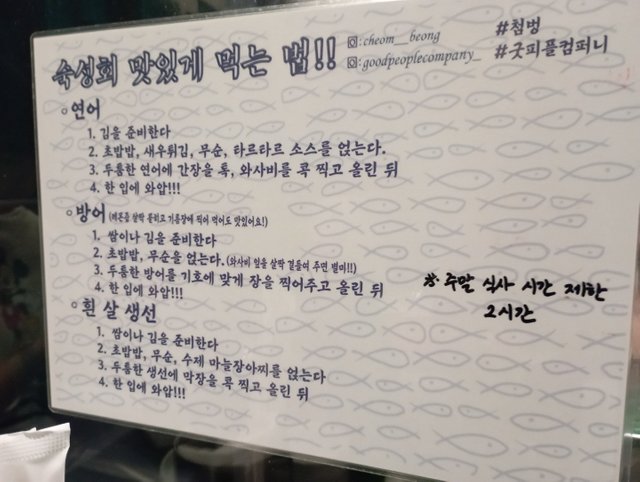 숙성회 맛있게 먹는 법!!
:cheom__beong
:goodpeoplecompany_
#첨벙
#굿피플컴퍼니
◦연어
1. 김을 준비한다
2. 초밥밥, 새우튀김, 무순, 타르타르 소스를 얹는다.
3. 두툼한 연어에 간장을 톡, 와사비를 콕 찍고 올린 뒤
4. 한 입에 와압!!!
◦방어 (레몬즙 살짝 뿌리고 기름장에 찍어 먹어도 맛있어요!)
1. 쌈이나 김을 준비한다
2. 초밥밥, 무순을 얹는다. (와사비 잎을 살짝 곁들여 주면 별미!!)
3. 두툼한 방어를 기호에 맞게 장을 찍어주고 올린 뒤
4. 한 입에 와압!!!
◦흰 살 생선
1. 쌈이나 김을 준비한다
2. 초밥밥, 무순, 수제 마늘장아찌를 얹는다
3. 두툼한 생선에 막장을 콕 찍고 올린 뒤
4. 한 입에 와압!!!
※ 주말 식사 시간 제한
2시간